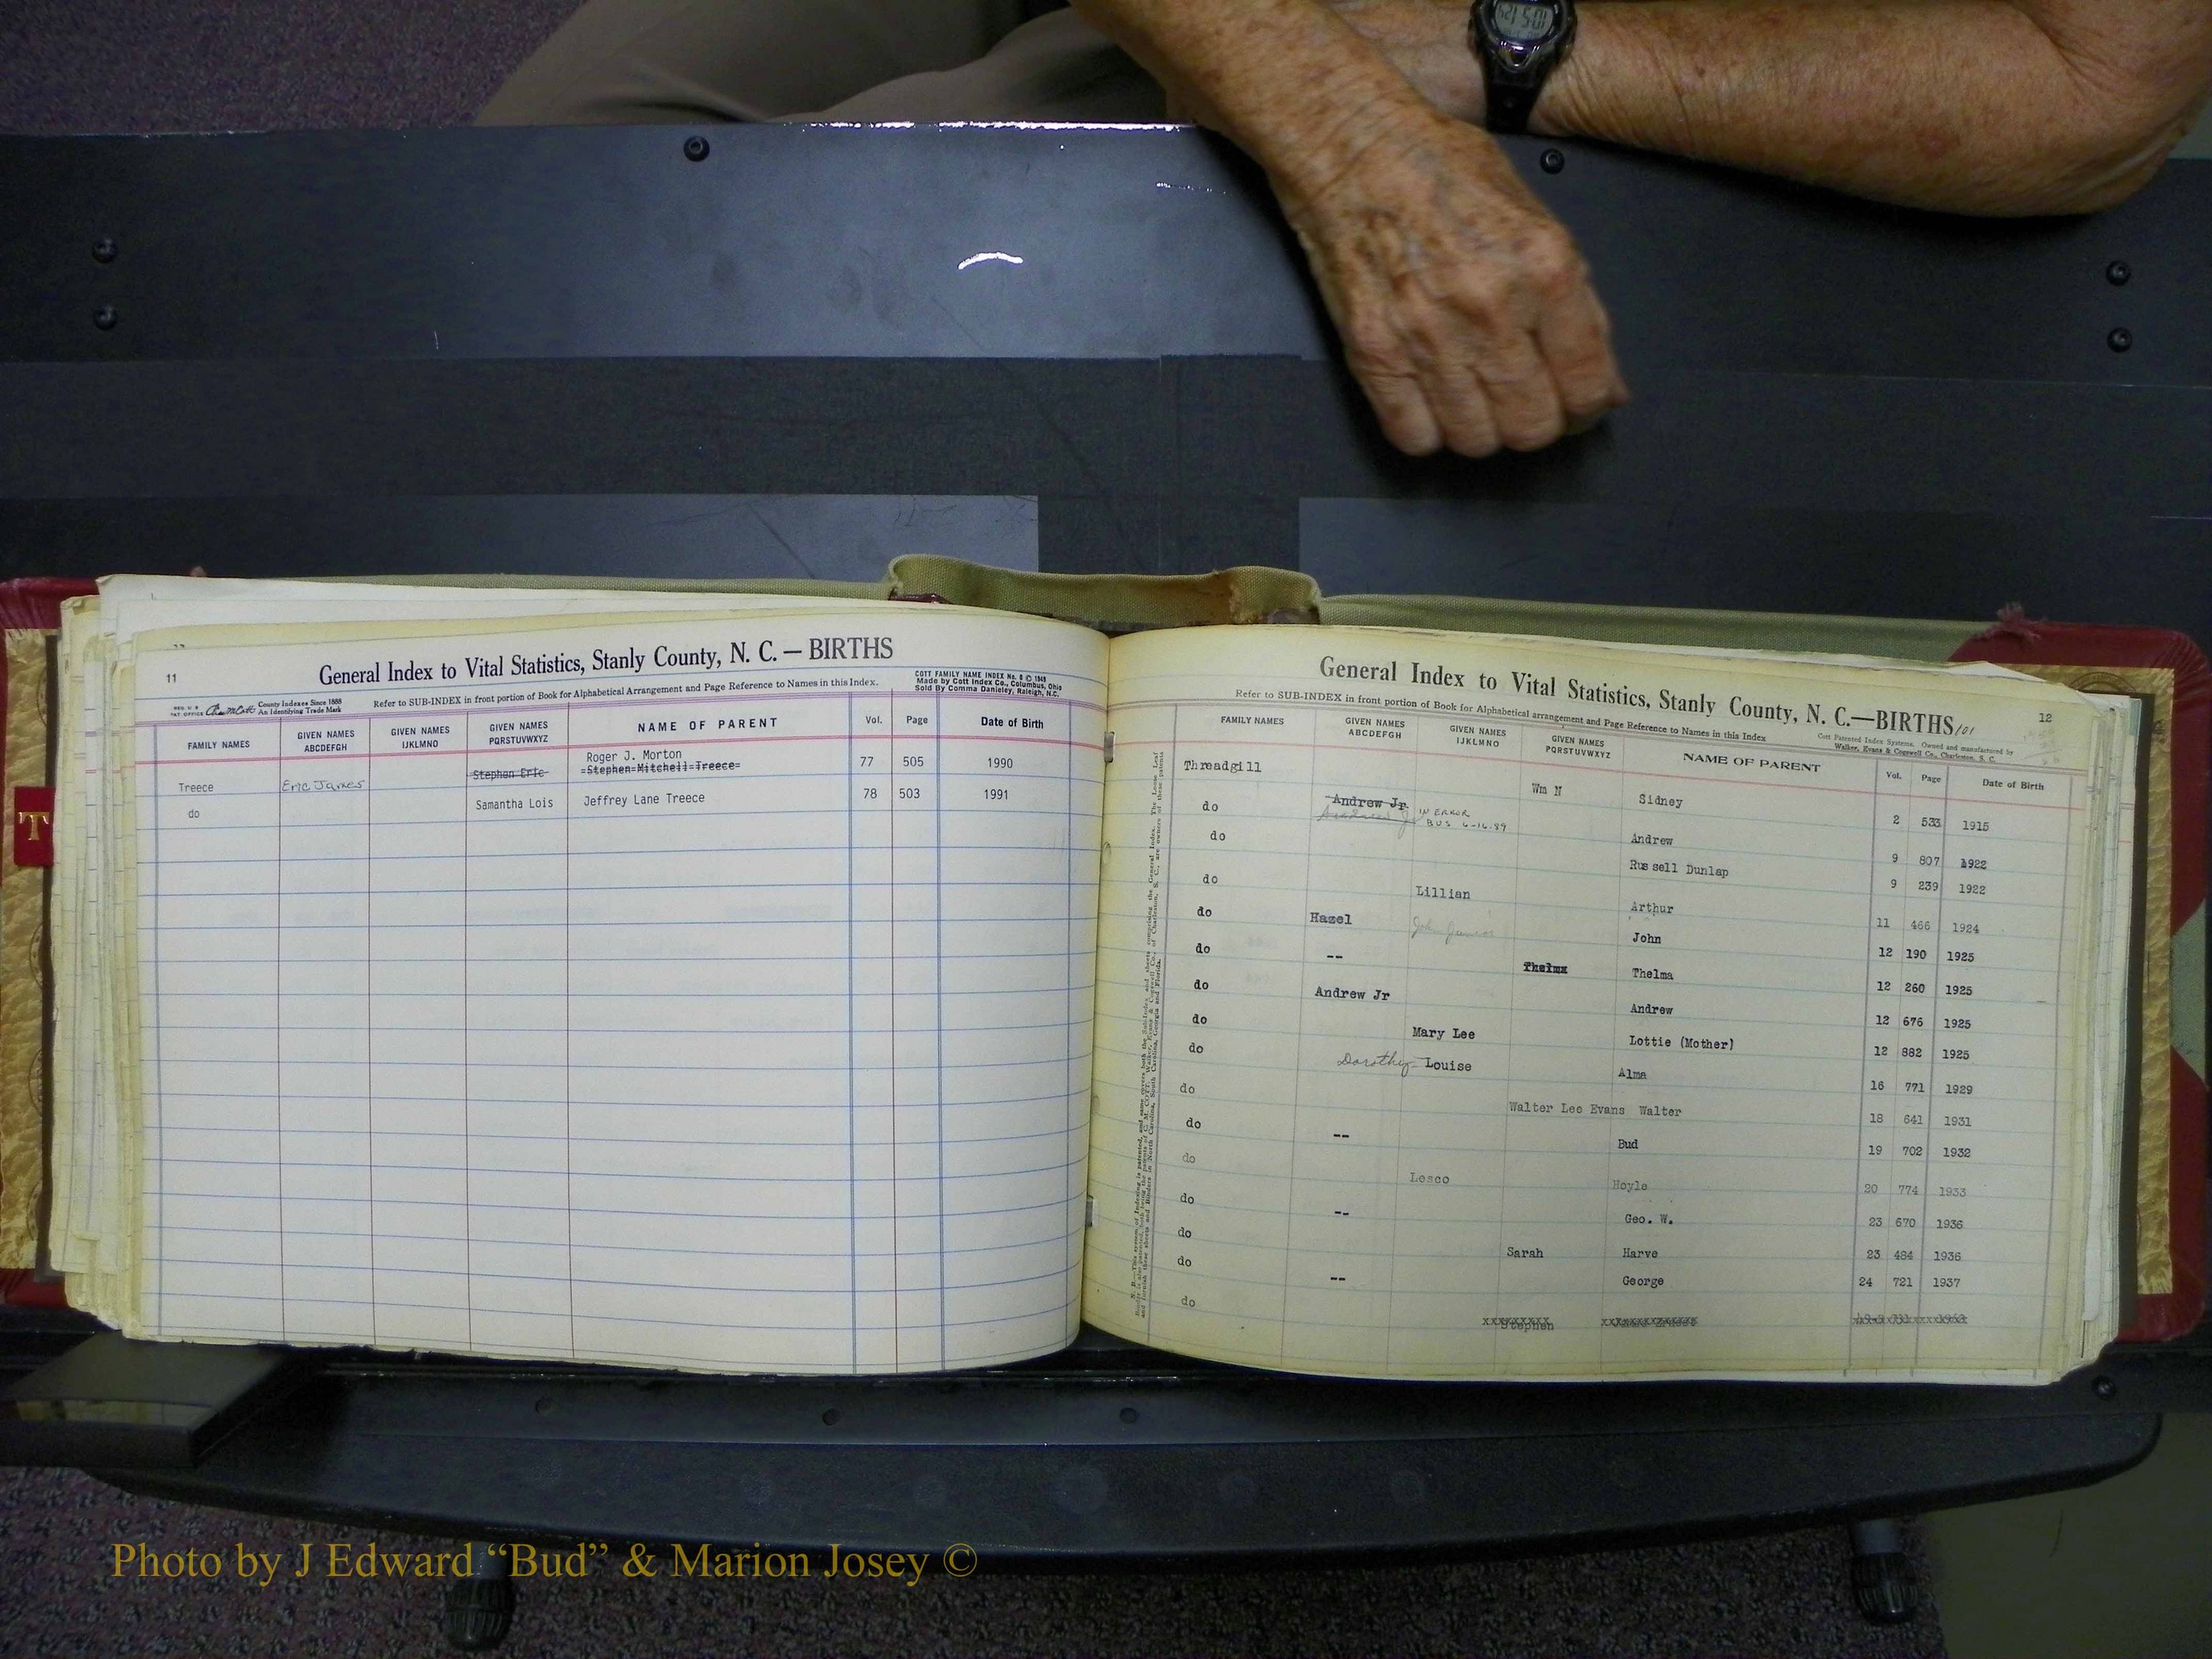 11
General Index to Vital Statistics, Stanly County, N. C. — BIRTHS
COTT FAMILY NAME INDEX No. 8 © 1949
Made by Cott Index Co., Columbus, Ohio
Sold By Comma Danieley, Raleigh, N.C.
County Indexes Since 1888
An Identifying Trade Mark
Refer to SUB-INDEX in front portion of Book for Alphabetical Arrangement and Page Reference to Names in this Index.
FAMILY NAMES GIVEN NAMES ABCDEFGH GIVEN NAMES IJKLMNO GIVEN NAMES PQRSTUVWXYZ NAME OF PARENT Vol. Page Date of Birth
Roger J. Morton
Treece Eric James Stephen Eric =Stephen=Mitchell=Treece= 77 505 1990
do Samantha Lois Jeffrey Lane Treece 78 503 1991
T
General Index to Vital Statistics, Stanly County, N. C.—BIRTHS 101
12
Refer to SUB-INDEX in front portion of Book for Alphabetical arrangement and Page Reference to Names in this Index
Cott Patented Index Systems. Owned and manufactured by
Walker, Evans & Cogswell Co., Charleston, S. C.
FAMILY NAMES GIVEN NAMES ABCDEFGH GIVEN NAMES IJKLMNO GIVEN NAMES PQRSTUVWXYZ NAME OF PARENT Vol. Page Date of Birth
Threadgill Wm N Sidney 2 533 1915
do Andrew Jr. IN ERROR Andrew 9 807 1922
6-16-89
do Russell Dunlap 9 239 1922
do Lillian Arthur 11 466 1924
do Hazel John Junior John 12 190 1925
do -- Thelma Thelma 12 260 1925
do Andrew Jr Andrew 12 676 1925
do Mary Lee Lottie (Mother) 12 882 1925
do Dorothy Louise Alma 16 771 1929
do Walter Lee Evans Walter 18 641 1931
do -- Bud 19 702 1932
do Lesco Hoyle 20 774 1933
do -- Geo. W. 23 670 1936
do Sarah Harve 23 484 1936
do -- George 24 721 1937
do Stephen
Photo by J Edward “Bud” & Marion Josey ©